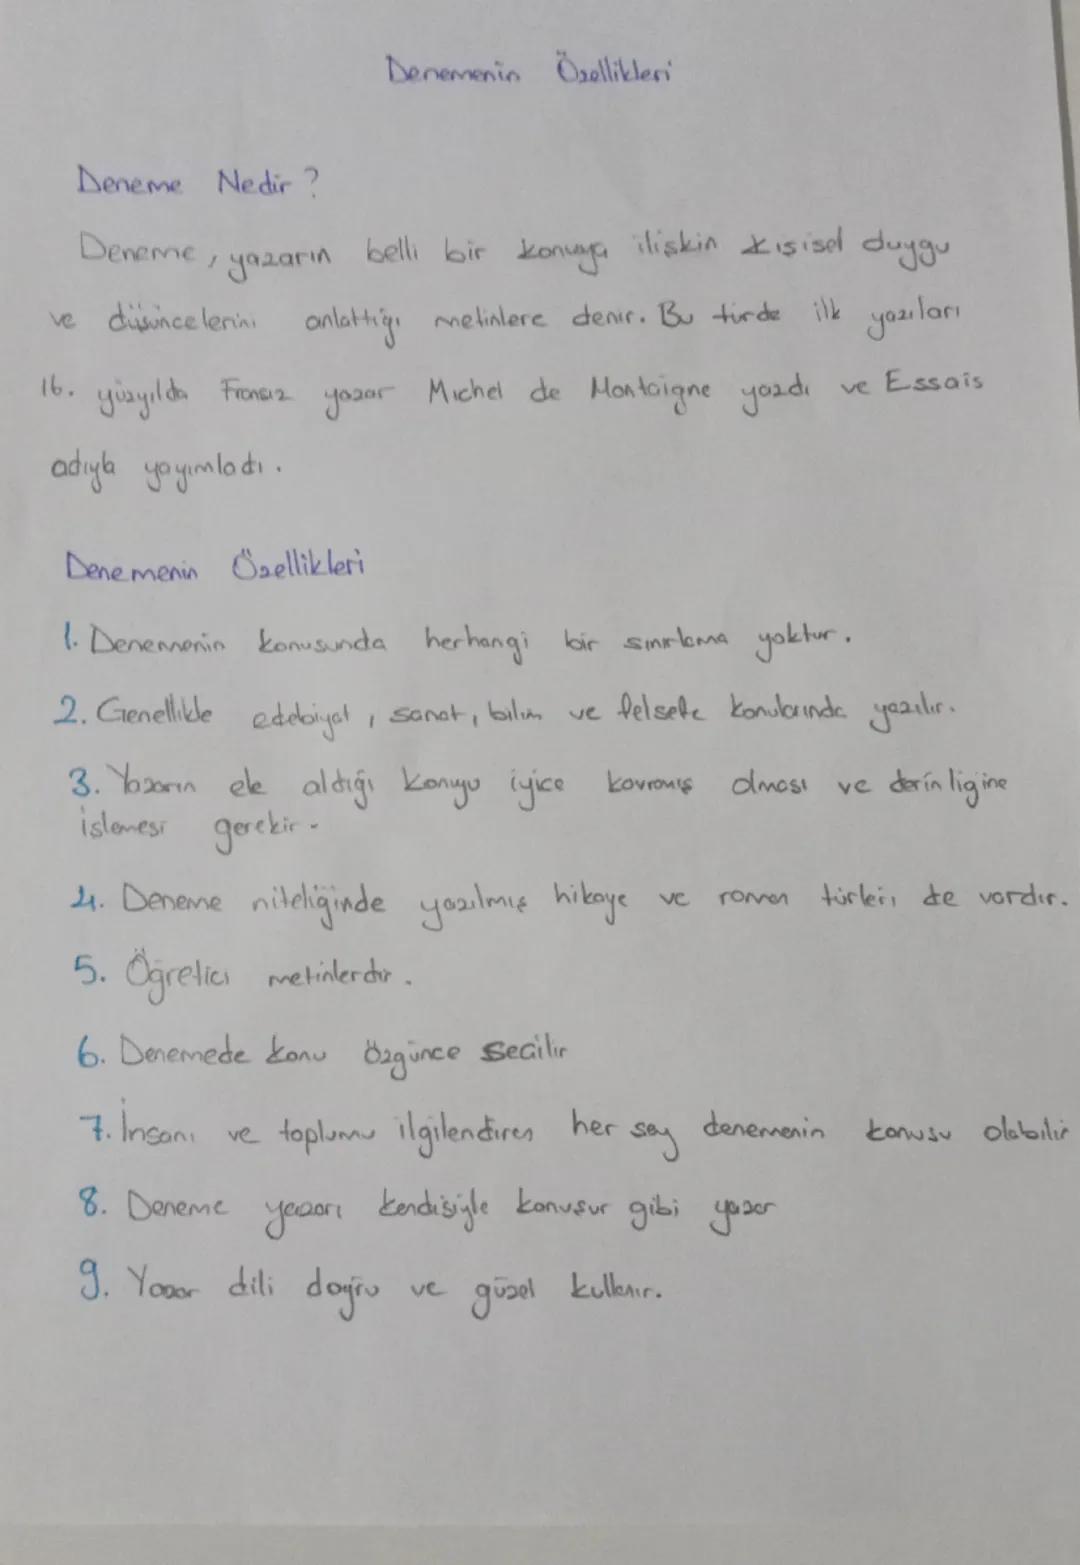 Denemenin Özellikleri
Deneme Nedir?
Deneme, yazarın belli bir konuya ilişkin kişisel duygu
ve düşüncelerini anlattığı metinlere denir. Bu türde ilk yazıları
16. yüzyılda Fransız yazar Michel de Montaigne yazdı ve Essais
adıyla yayımladı.
Denemenin Özellikleri
1. Denemenin konusunda herhangi bir sınırlama yoktur.
2. Genellikle edebiyat, sanat, bilim ve felsefe konularında yazılır.
3. Yazarın ele aldığı konuyu iyice kavramış olması ve derinliğine
işlemesi gerekir.
4. Deneme niteliğinde yazılmış hikaye ve roman türleri de vardır.
5. Öğretici metinlerdir.
6. Denemede konu özgünce seçilir
7. İnsanı ve toplumu ilgilendiren her şey denemenin konusu olabilir
8. Deneme yazarı kendisiyle konuşur gibi yazar
9. Yazar dili doğru ve güzel kullanır.